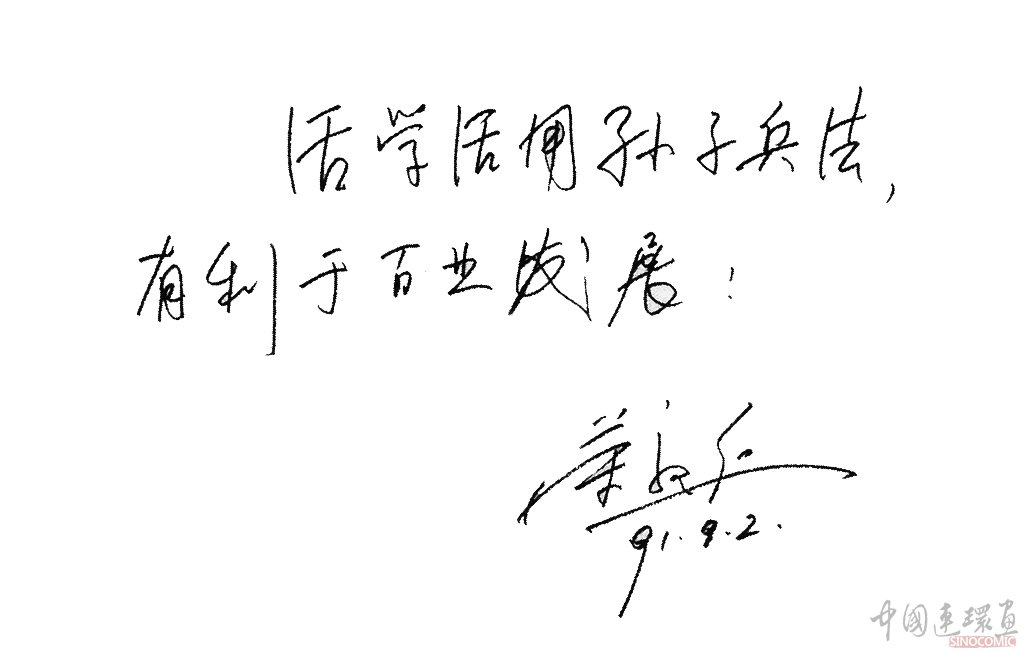 活学活用孙子兵法，
有利于百业发展！
荣毅仁
91.9.2.
中國連環畫
SINOCOMIC